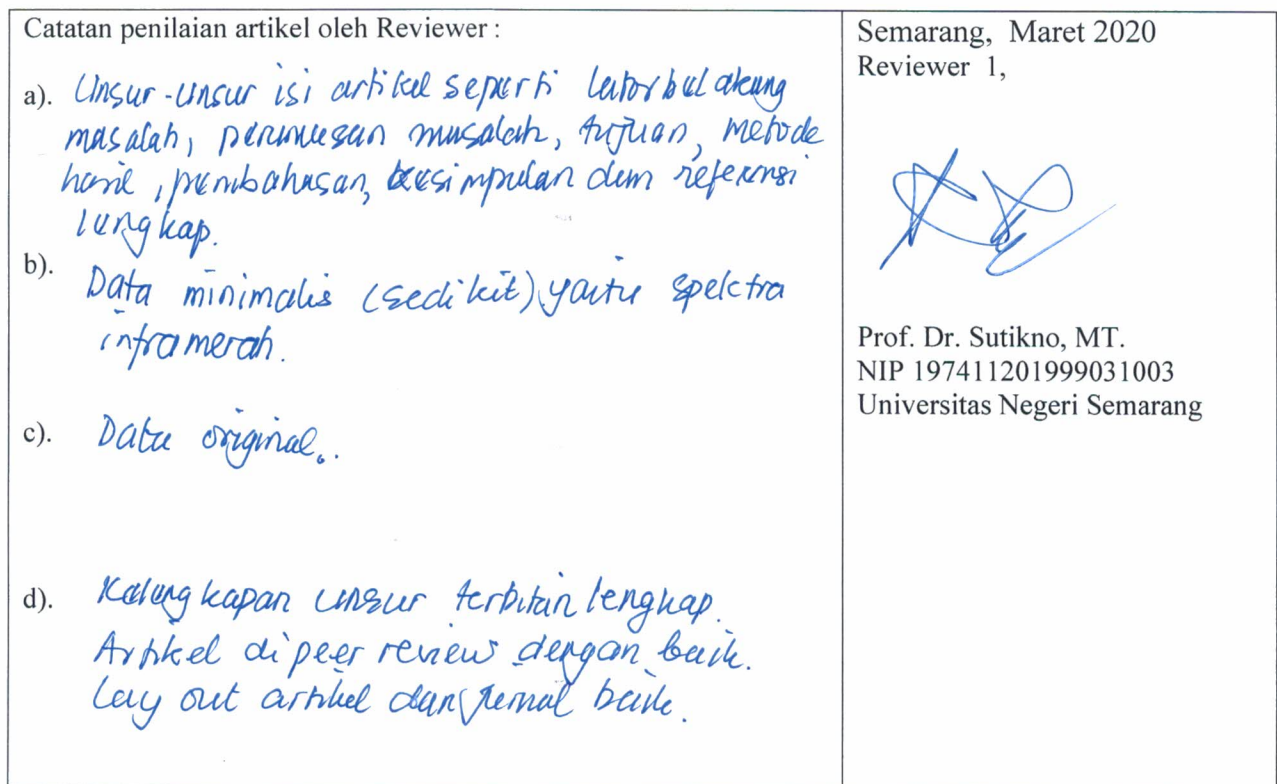 Catatan penilaian artikel oleh Reviewer :
a). Unsur-unsur isi artikel seperti latar belakang
masalah, perumusan masalah, tujuan, metode
hasil, pembahasan, kesimpulan dan referensi
lengkap.
b). Data minimalis (sedikit) yaitu spektra
inframerah.
c). Data original.
d). Kelengkapan unsur terbitan lengkap.
Artikel di peer review dengan baik.
Lay out artikel dan jurnal baik.
Semarang, Maret 2020
Reviewer 1,
Prof. Dr. Sutikno, MT.
NIP 197411201999031003
Universitas Negeri Semarang